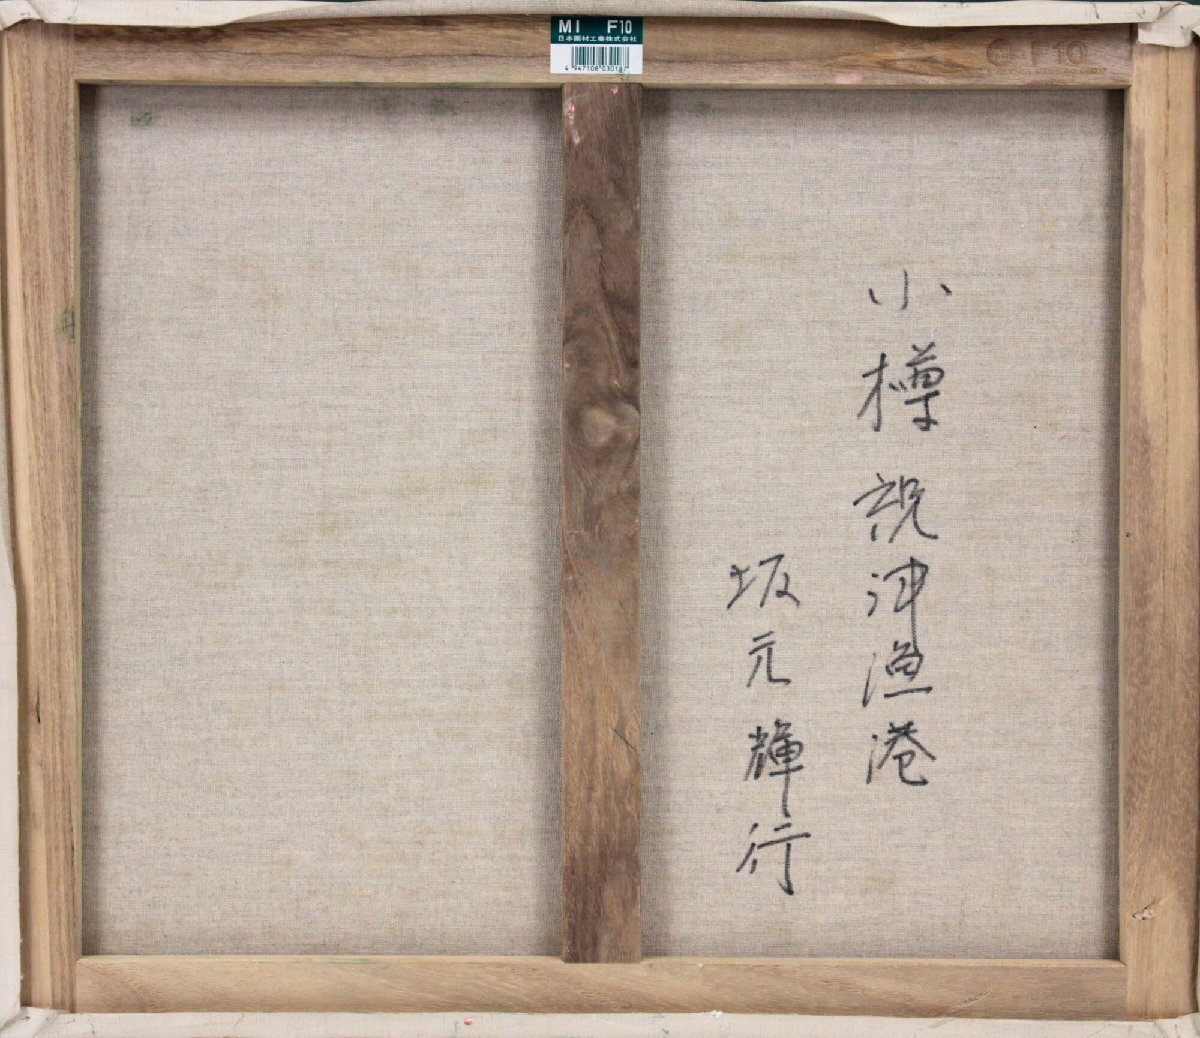 M1 F10
日本画材工業株式会社
4 947108 030187
小樽 祝津漁港
坂元輝行